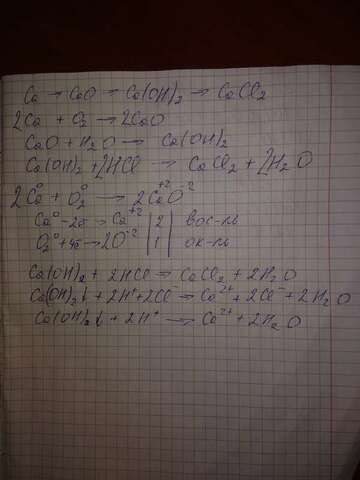 Ca → CaO → Ca(OH)₂ → CaCl₂
2Ca + O₂ → 2CaO
CaO + H₂O → Ca(OH)₂
Ca(OH)₂ + 2HCl → CaCl₂ + 2H₂O
2Ca⁰ + O₂⁰ → 2Ca⁺²O⁻²
Ca⁰ - 2ē → Ca⁺² | 2 | вос-ль
O₂⁰ + 4ē → 2O⁻² | 1 | ок-ль
Ca(OH)₂ + 2HCl → CaCl₂ + 2H₂O
Ca(OH)₂↓ + 2H⁺ + 2Cl⁻ → Ca²⁺ + 2Cl⁻ + 2H₂O
Ca(OH)₂↓ + 2H⁺ → Ca²⁺ + 2H₂O